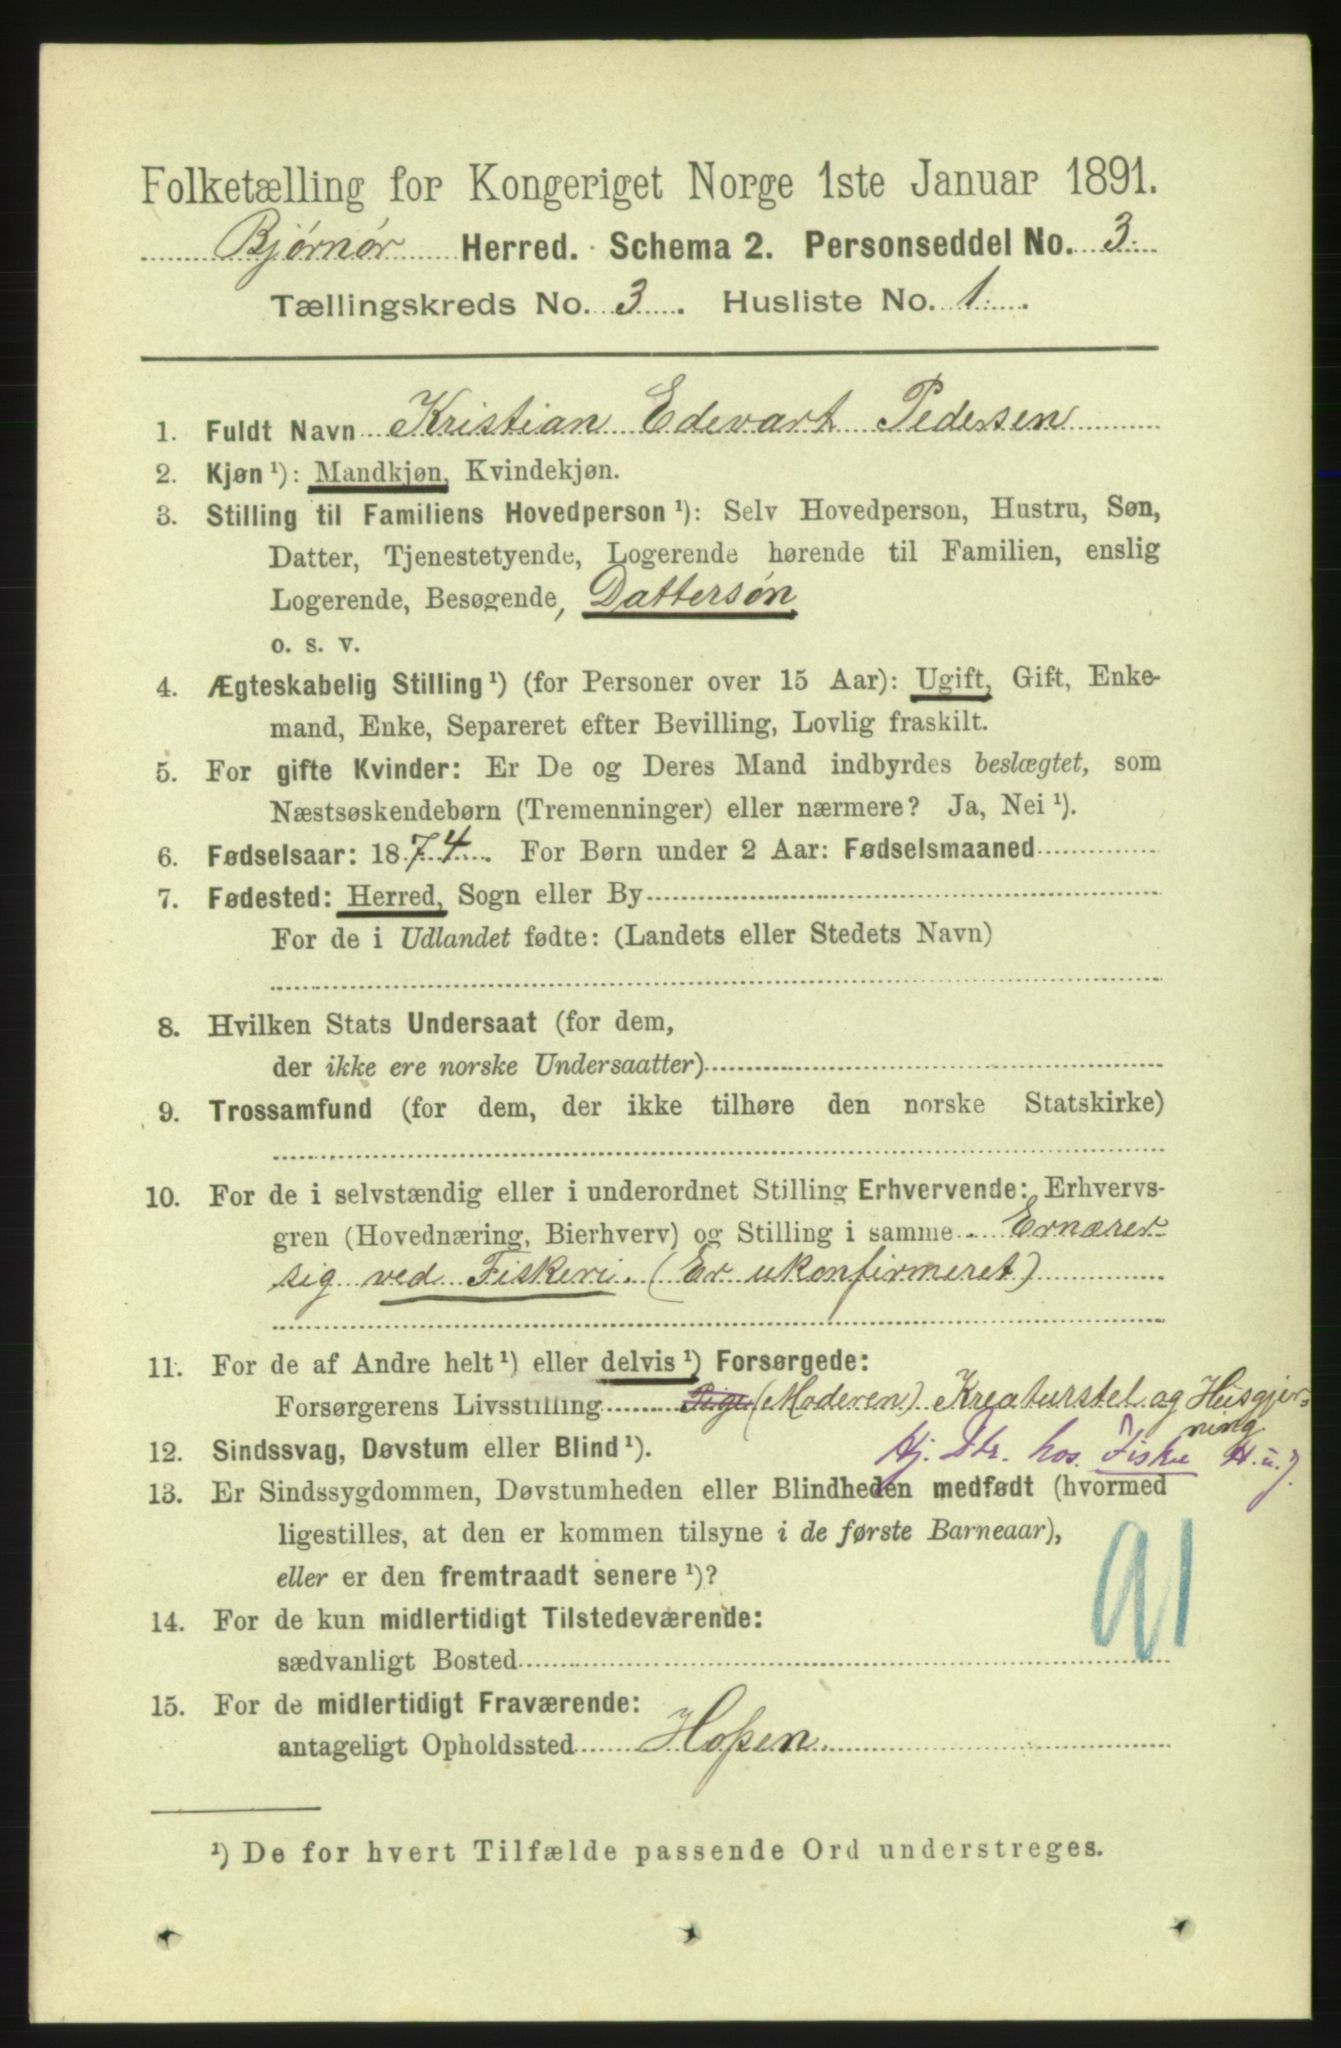 Folketælling for Kongeriget Norge 1ste Januar 1891.
Bjørnør Herred. Schema 2. Personseddel No. 3.
Tællingskreds No. 3. Husliste No. 1.
1. Fuldt Navn Kristian Edevart Pedersen
2. Kjøn ¹): Mandkjøn, Kvindekjøn.
3. Stilling til Familiens Hovedperson ¹): Selv Hovedperson, Hustru, Søn,
Datter, Tjenestetyende, Logerende hørende til Familien, enslig
Logerende, Besøgende, Dattersøn
o. s. v.
4. Ægteskabelig Stilling ¹) (for Personer over 15 Aar): Ugift, Gift, Enke-
mand, Enke, Separeret efter Bevilling, Lovlig fraskilt.
5. For gifte Kvinder: Er De og Deres Mand indbyrdes beslægtet, som
Næstsøskendebørn (Tremenninger) eller nærmere? Ja, Nei ¹).
6. Fødselsaar: 1874. For Børn under 2 Aar: Fødselsmaaned
7. Fødested: Herred, Sogn eller By
For de i Udlandet fødte: (Landets eller Stedets Navn)
8. Hvilken Stats Undersaat (for dem,
der ikke ere norske Undersaatter)
9. Trossamfund (for dem, der ikke tilhøre den norske Statskirke)
10. For de i selvstændig eller i underordnet Stilling Erhvervende: Erhvervs-
gren (Hovednæring, Bierhverv) og Stilling i samme Ernærer
sig ved Fiskeri. (Er ukonfirmeret)
11. For de af Andre helt ¹) eller delvis ¹) Forsørgede:
Forsørgerens Livsstilling Pige (Moderen) Kreaturstel og Husgjer-
ning
12. Sindssvag, Døvstum eller Blind ¹).
Hj. Str. hos Fiske H. u. J.
13. Er Sindssygdommen, Døvstumheden eller Blindheden medfødt (hvormed
ligestilles, at den er kommen tilsyne i de første Barneaar),
eller er den fremtraadt senere ¹)?
91
14. For de kun midlertidigt Tilstedeværende:
sædvanligt Bosted
15. For de midlertidigt Fraværende:
antageligt Opholdssted Hopen
¹) De for hvert Tilfælde passende Ord understreges.